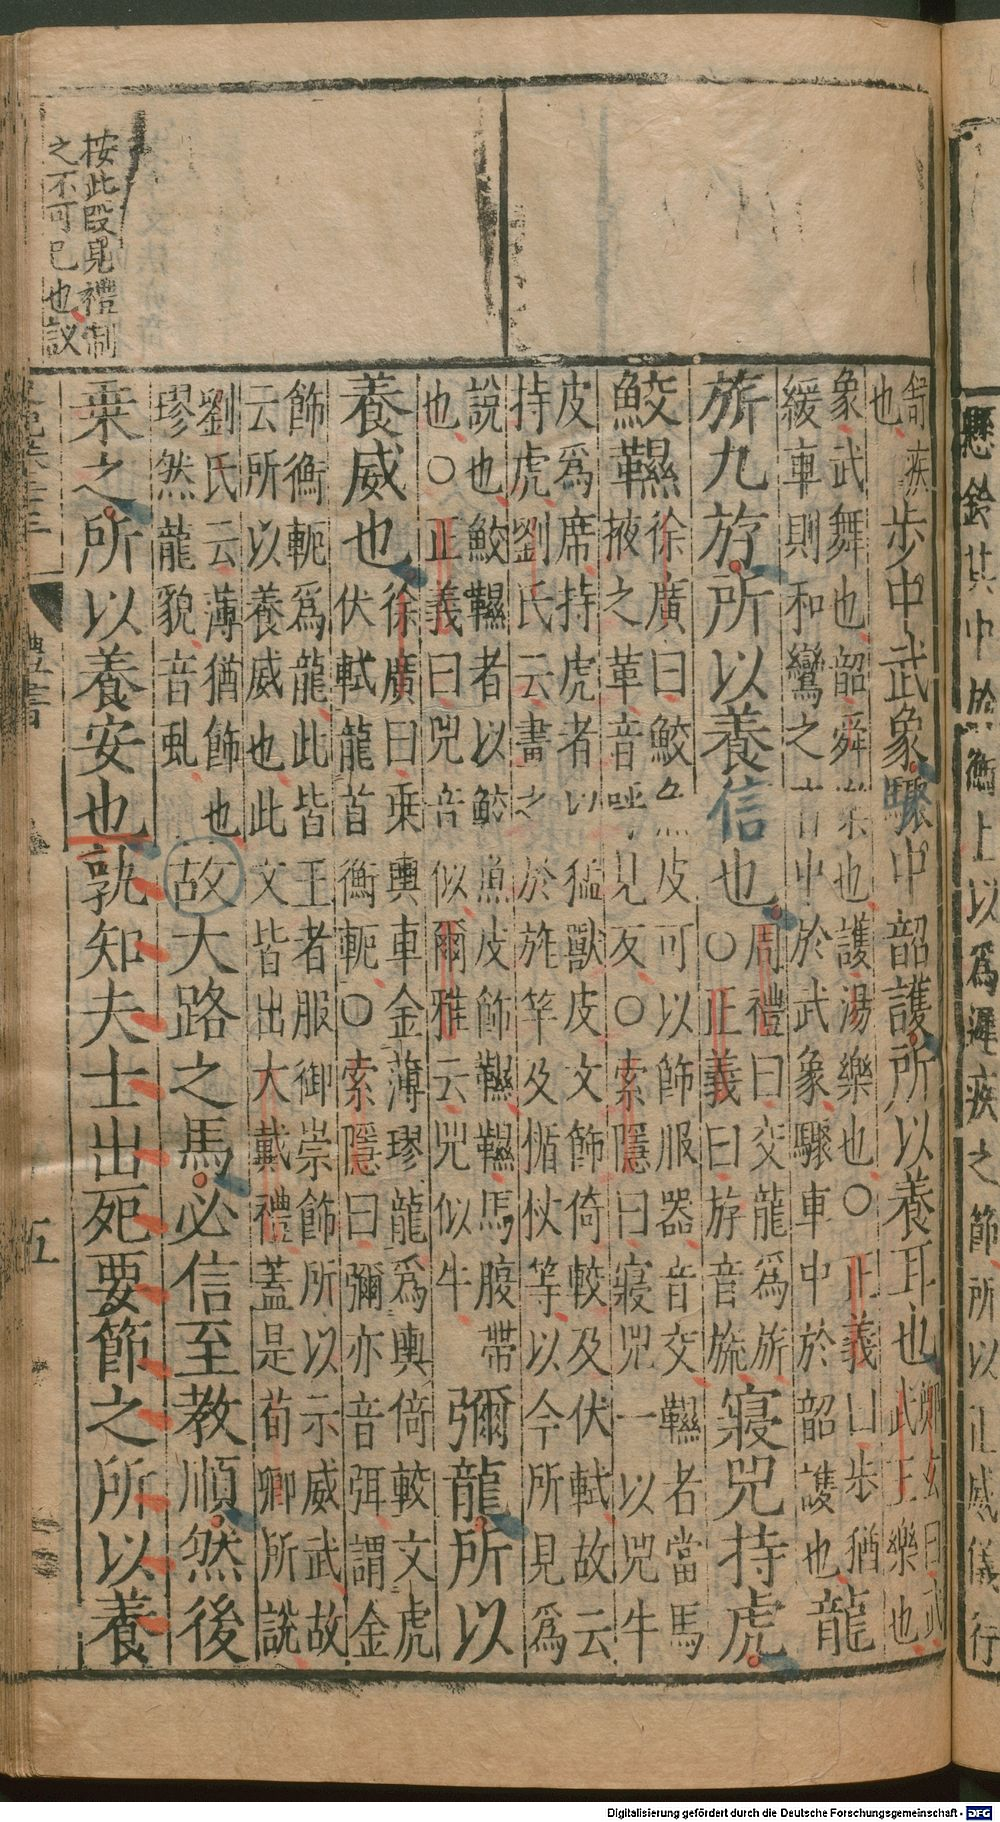 懸鈴其中於衡上以爲遲疾之節所以正威儀行
舒疾也步中武象驟中韶護所以養耳也鄭玄曰武武王樂也
象武舞也韶舜樂也護湯樂也○正義曰步猶
緩車則和鸞之音中於武象驟車中於韶護也龍
旂九斿所以養信也周禮曰交龍爲旂○正義曰斿音旒寢兕持虎
鮫韅徐廣曰鮫魚皮可以飾服器音交韅者當馬
掖之革音呼見反○索隱曰寢兕一以兕牛
皮爲席持虎者以猛獸皮文飾倚較及伏軾故云
持虎劉氏云畫之於旌竿及楯杖等以今所見爲
說也鮫韅者以鮫魚皮飾韅韅馬腹帶
也○正義曰兕音似爾雅云兕似牛彌龍所以
養威也徐廣曰乘輿車金薄璆龍爲輿倚較文虎
伏軾龍首衡軛○索隱曰彌亦音弭謂金
飾衡軛爲龍此皆王者服御崇飾所以示威武故
云所以養威也此文皆出大戴禮蓋是荀卿所說
劉氏云薄猶飾也
璆然龍貌音虬故大路之馬必信至教順然後
乘之所以養安也孰知夫士出死要節之所以養
禮書
五
按此段見禮制
之不可已也議
Digitalisierung gefördert durch die Deutsche Forschungsgemeinschaft - DFG